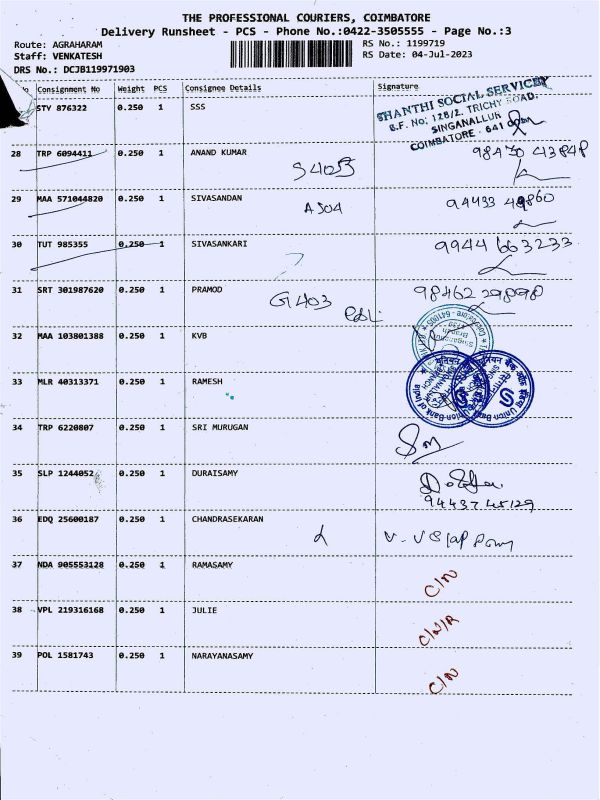 THE PROFESSIONAL COURIERS, COIMBATORE
Delivery Runsheet - PCS - Phone No.:0422-3505555 - Page No.:3
Route: AGRAHARAM RS No.: 1199719
Staff: VENKATESH RS Date: 04-Jul-2023
DRS No.: DCJB119971903
No Consignment No Weight PCS Consignee Details Signature
STY 876322 0.250 1 SSS
SHANTHI SOCIAL SERVICES
B.F. No: 128/2, TRICHY ROAD,
SINGANALLUR
COIMBATORE - 641 005
28 TRP 6094411 0.250 1 ANAND KUMAR 98430 43848
S4053
29 MAA 571044820 0.250 1 SIVASANDAN
A504
30 TUT 985355 0.250 1 SIVASANKARI 9944 663233
31 SRT 301987620 0.250 1 PRAMOD 98462 29898
G1403
32 MAA 103801388 0.250 1 KVB
33 MLR 40313371 0.250 1 RAMESH
Union Bank of India
34 TRP 6220807 0.250 1 SRI MURUGAN
35 SLP 1244052 0.250 1 DURAISAMY
94437 45129
36 EDQ 25600187 0.250 1 CHANDRASEKARAN
37 NDA 905553128 0.250 1 RAMASAMY C/N
38 VPL 219316168 0.250 1 JULIE
39 POL 1581743 0.250 1 NARAYANASAMY C/N